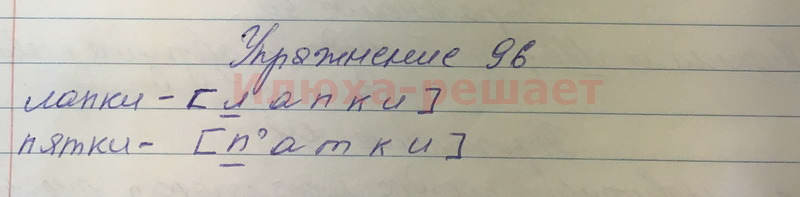 Упражнение 96
Илюха-решает
лапки - [лапки]
пятки - [п'атки]